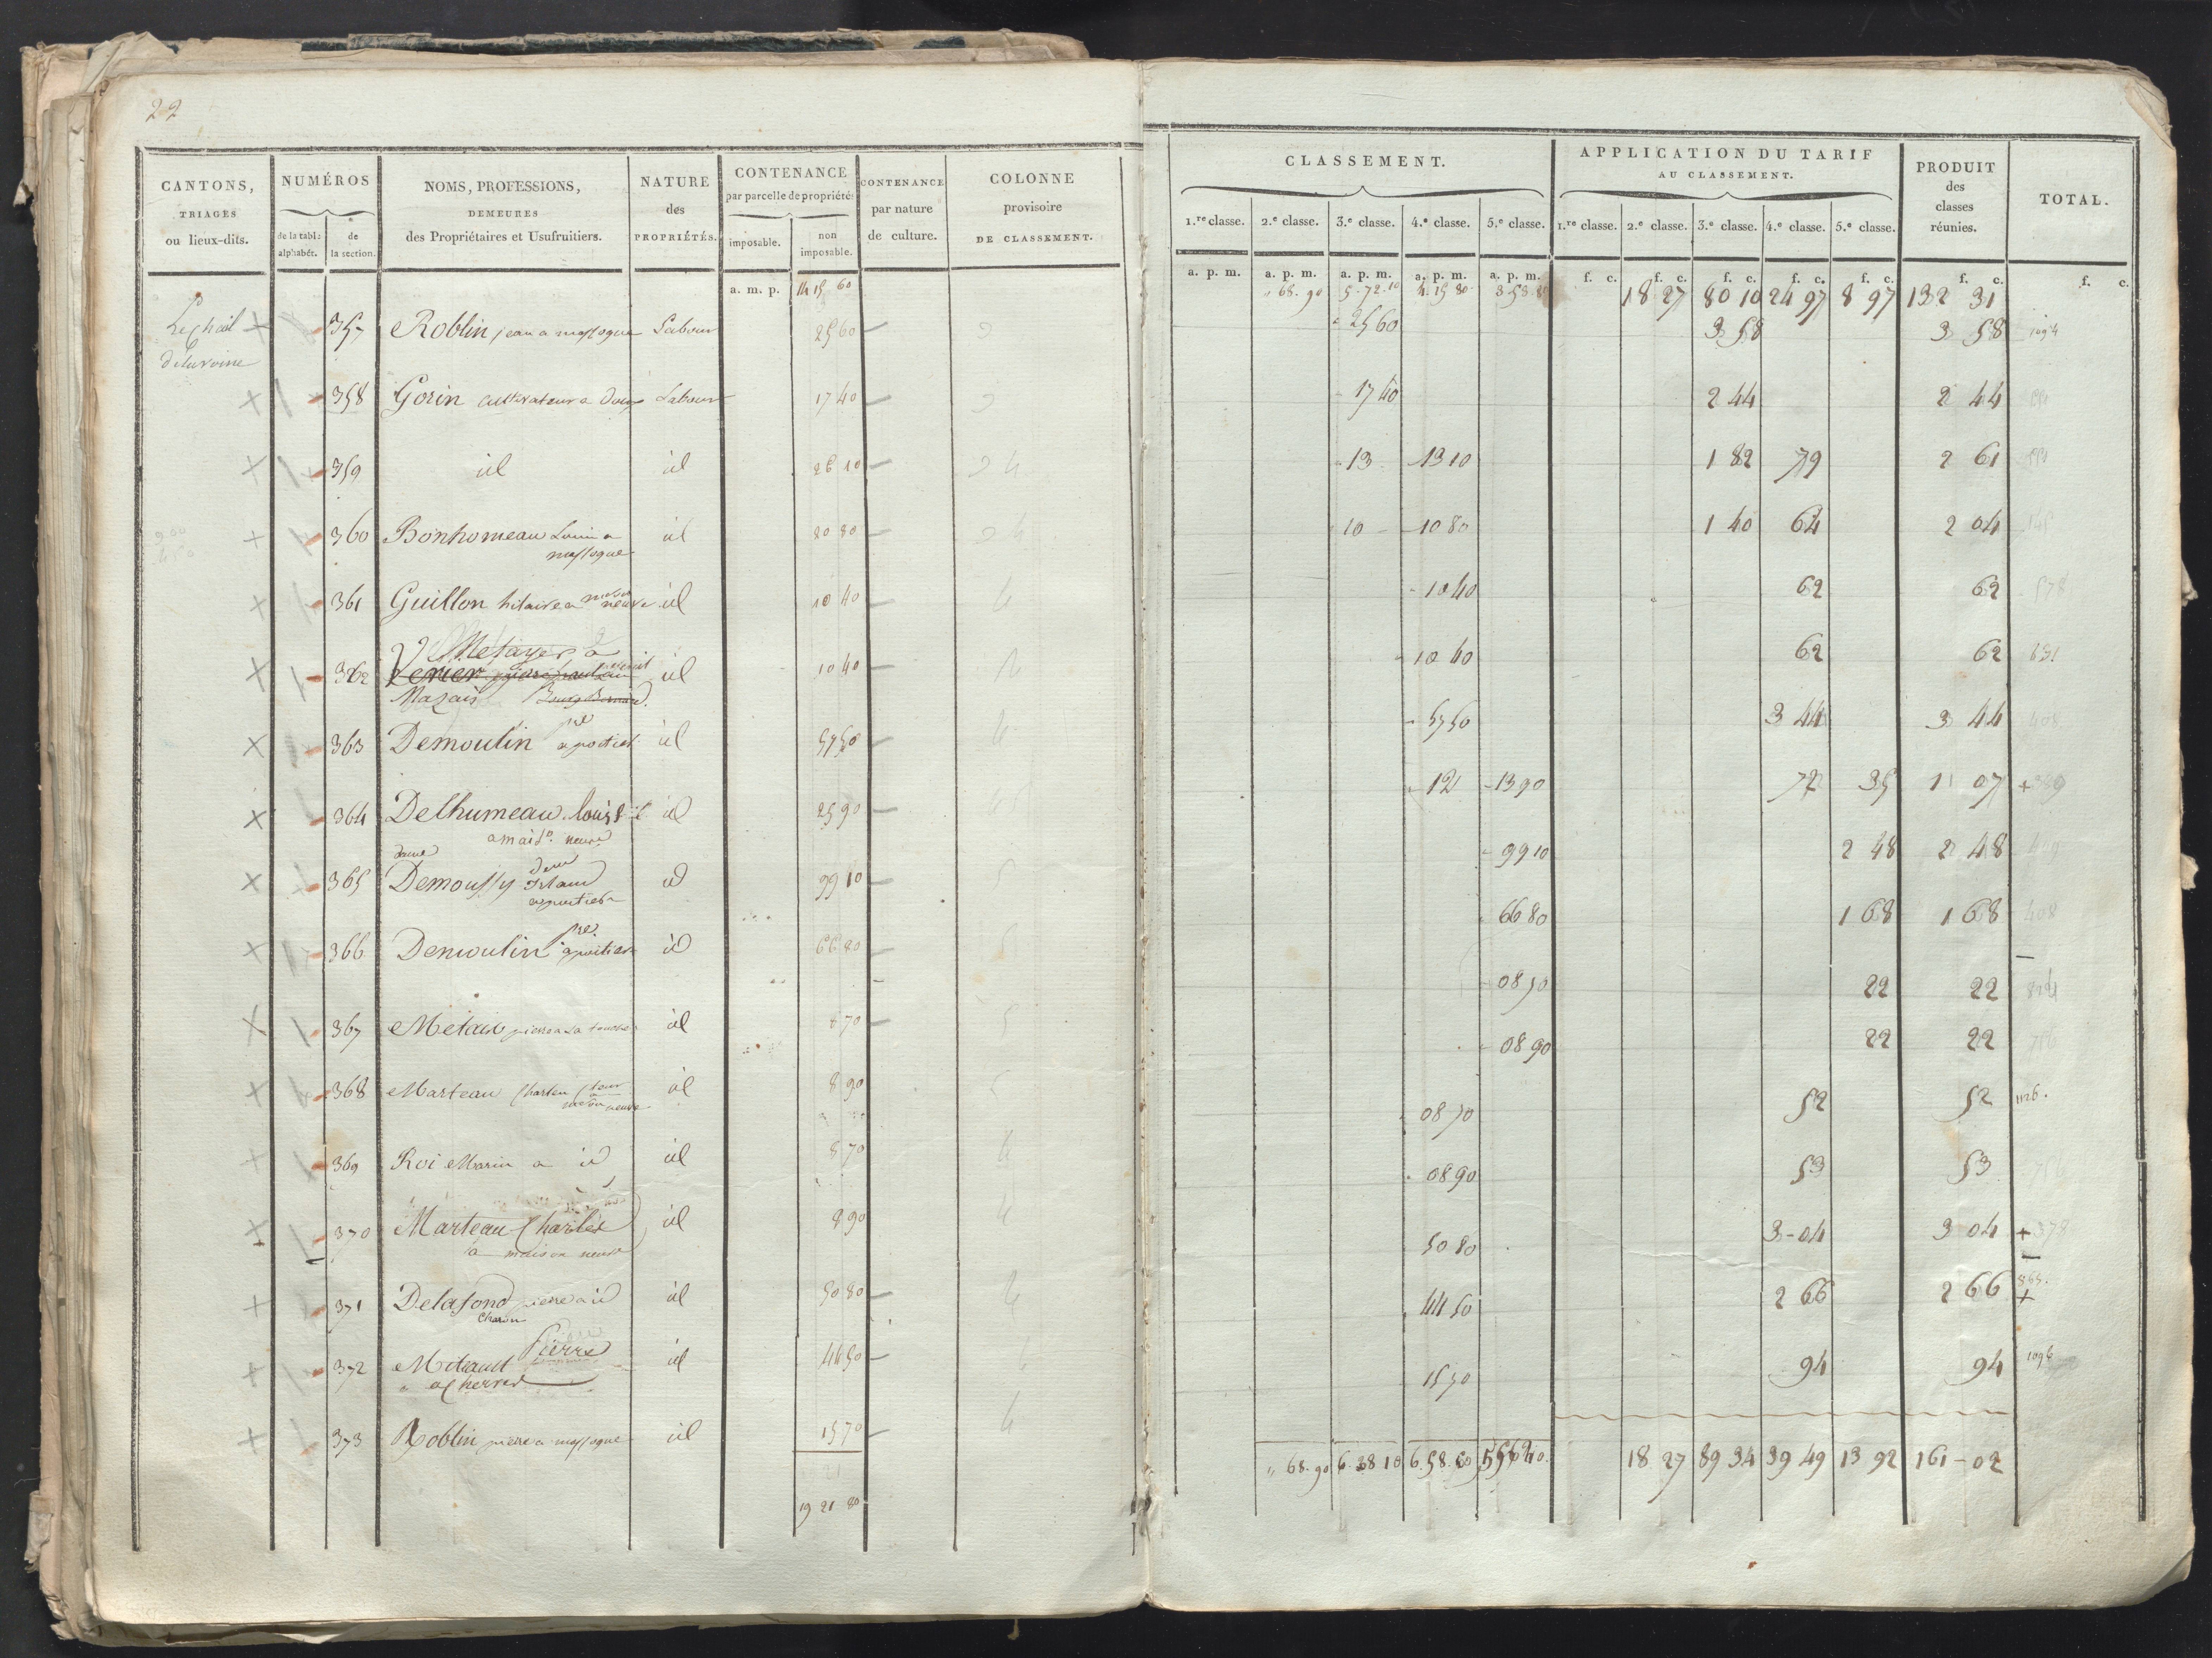 22
CANTONS, TRIAGES ou lieux-dits.
NUMÉROS
de la tabl: alphabét.
de la section.
NOMS, PROFESSIONS, DEMEURES des Propriétaires et Usufruitiers.
NATURE des PROPRIÉTÉS.
CONTENANCE par parcelle de propriété:
imposable.
non imposable.
CONTENANCE par nature de culture.
COLONNE provisoire DE CLASSEMENT.
a. m. p. 14 15 60
357 Roblin jean a massogne Labour 25 60
358 Gorin cultivateur a Labour 17 40
359 id id 26 10
360 Bonhomeau Louis a massogne id 20 80
361 Guillon hilaire a neuve id 10 40
362 Metayer a id 10 40
Mazais
363 Demoulin a poitiers id 57 50
364 Delhumeau louis id 25 90
a mais.n neuve
365 Demoussy id 99 10
a poitiers
366 Demoulin a poitiers id 66 80
367 Metais pierre a la touche id 8 70
368 Marteau Charles neuve id 8 90
369 Roi Marin a id id 8 70
370 Marteau Charles id 8 90
a maison neuve
371 Delafond pierre a id id 50 80
Charon
372 Mitault Pierre id 44 50
a Cherves
373 Roblin pierre a massogne id 15 70
19 21 80
CLASSEMENT.
1.re classe. 2.e classe. 3.e classe. 4.e classe. 5.e classe.
a. p. m. a. p. m. a. p. m. a. p. m. a. p. m.
APPLICATION DU TARIF AU CLASSEMENT.
1.re classe. 2.e classe. 3.e classe. 4.e classe. 5.e classe.
f. c. f. c. f. c. f. c. f. c.
PRODUIT des classes réunies.
f. c.
TOTAL.
f. c.
" 68. 90 5. 72. 10 4. 15 80 18 27 80 10 24 97 8 97 132 31
25 60 3 58 3 58 1094
17 40 2 44 2 44
13 13 10 1 82 79 2 61
10 10 80 1 40 64 2 04
10 40 62 62 578
10 40 62 62
57 50 3 44 3 44 408
12 13 90 72 35 1 07 +
99 10 2 48 2 48
66 80 1 68 1 68 408
08 70 22 22
08 90 22 22
08 70 52 52 1126.
08 90 53 53
50 80 3-04 3 04 +
44 50 2 66 2 66 +
15 70 94 94
" 68. 90 6. 38 10 6. 58. 60 18 27 89 34 39 49 13 92 161-02